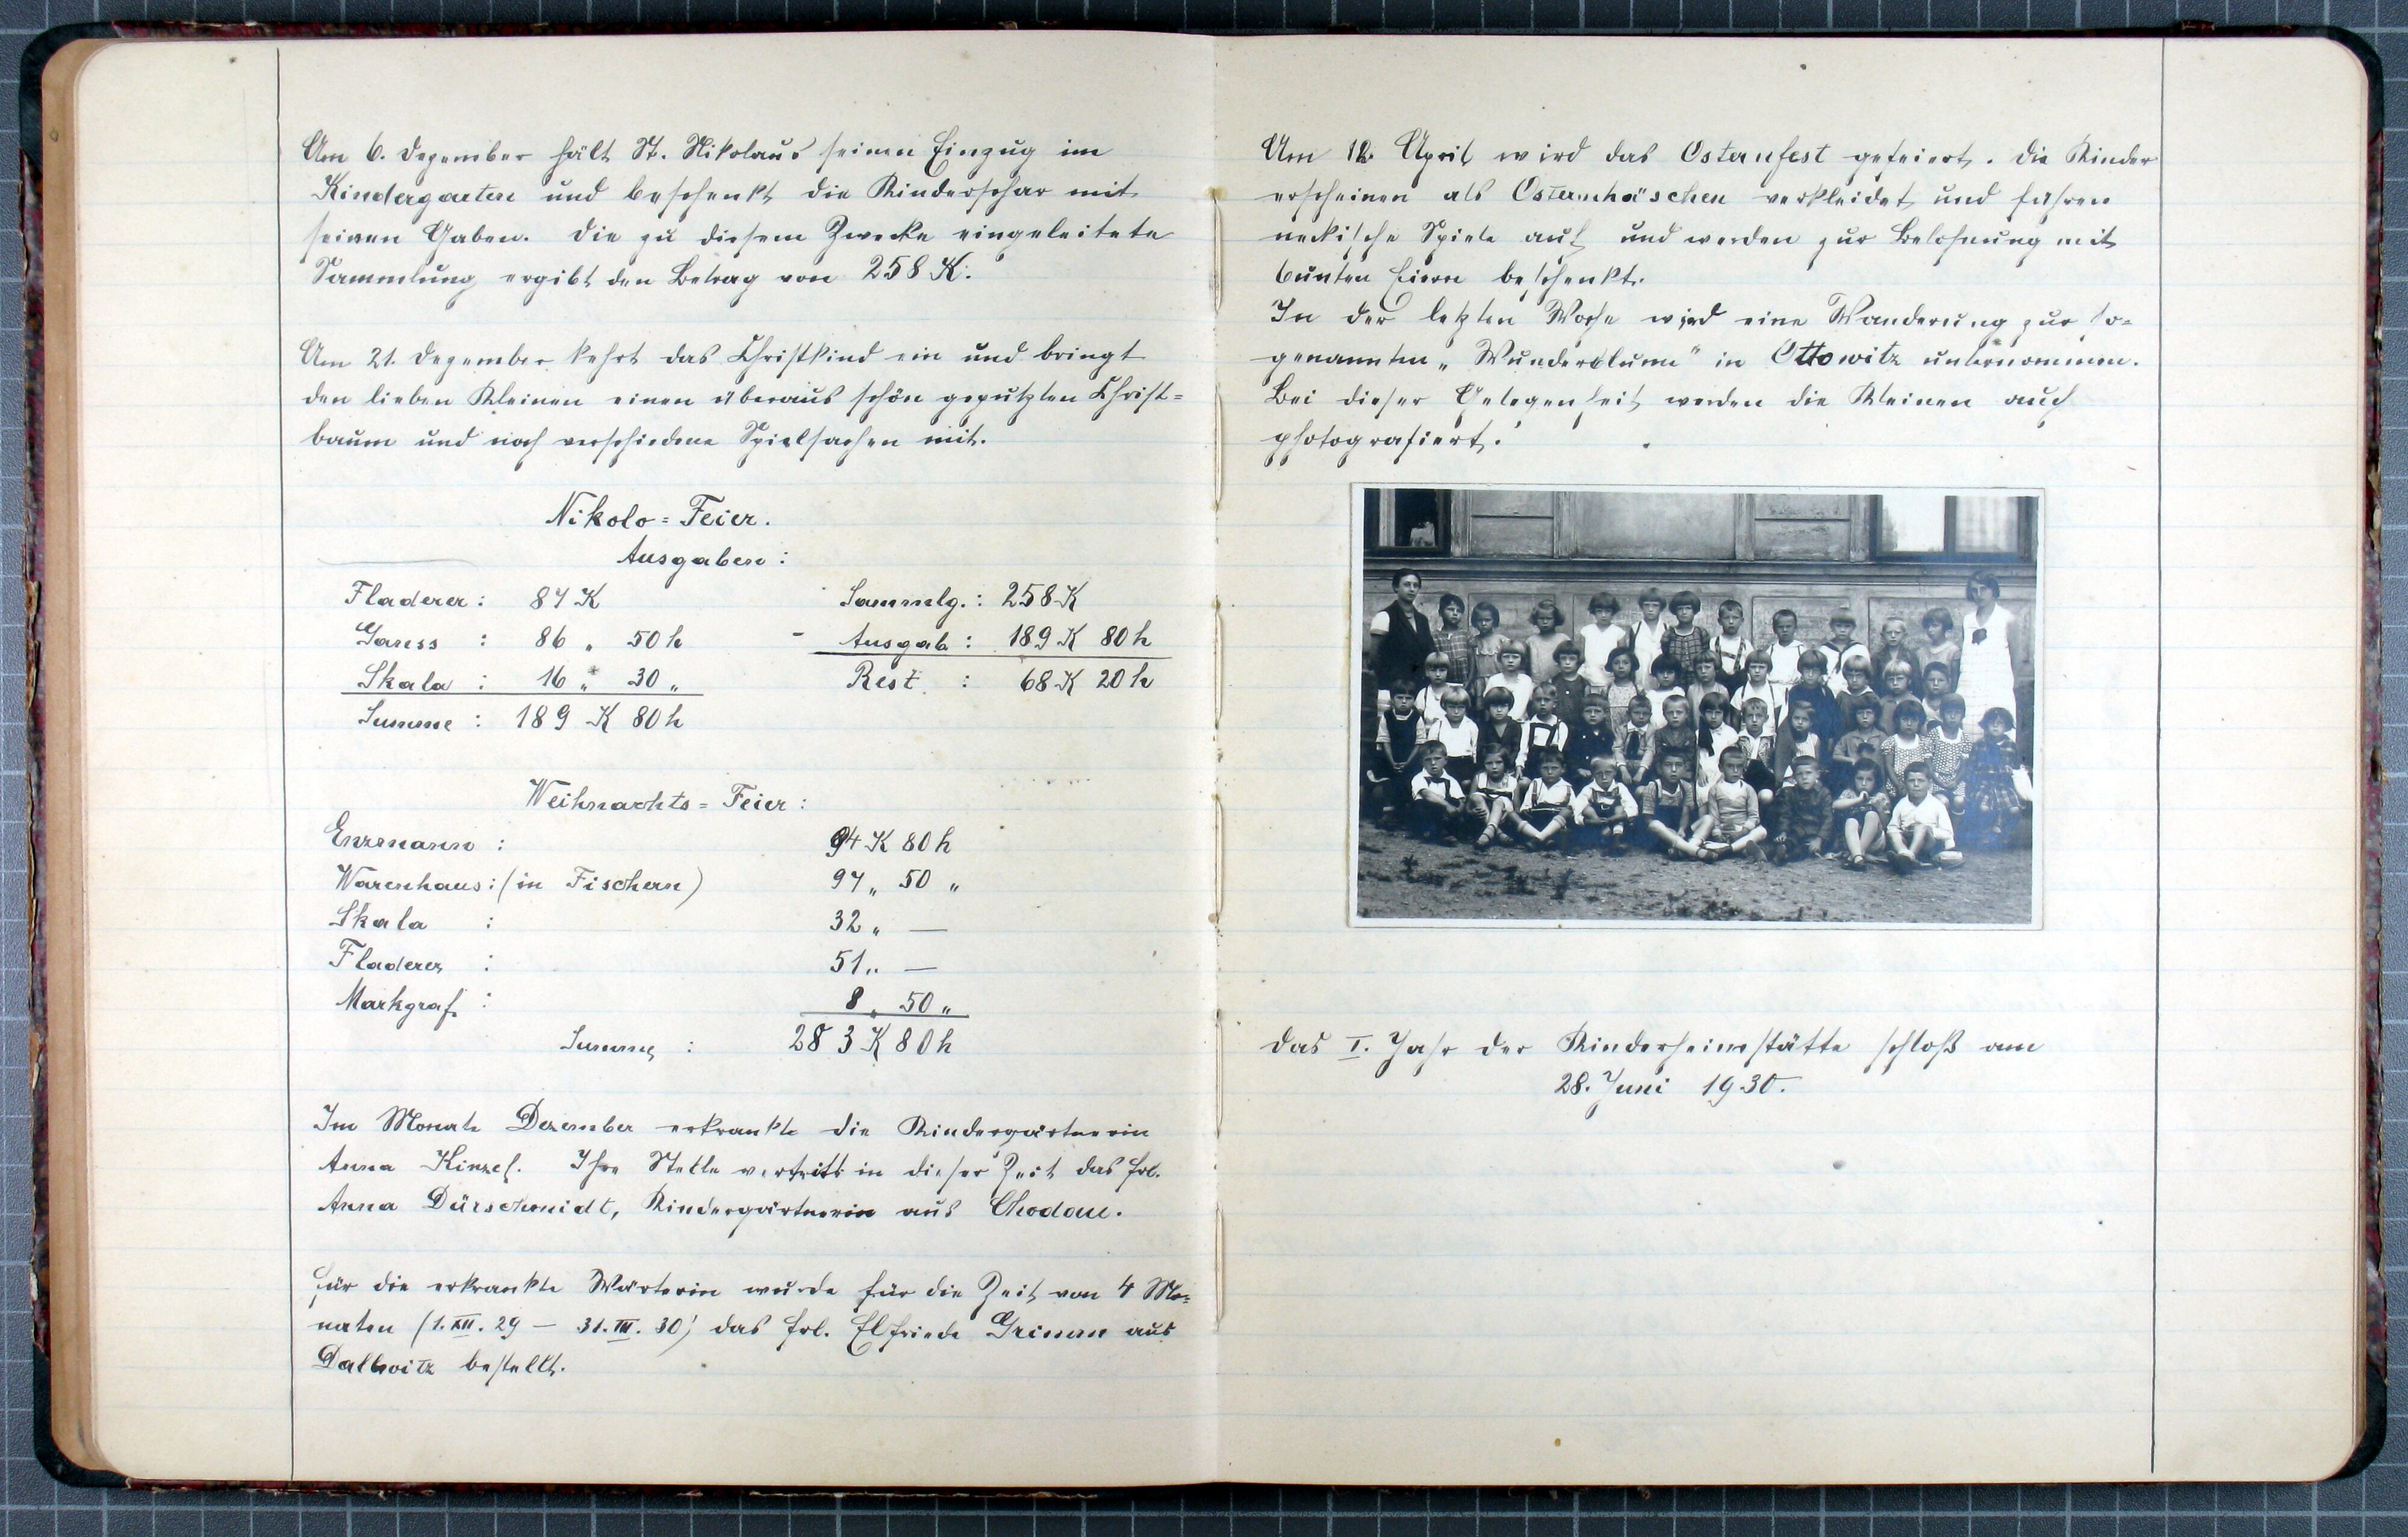 Am 6. Dezember hält St. Nikolaus seinen Einzug im
Kindergarten und beschenkt die Kinderschar mit
seinen Gaben. Die zu diesem Zwecke eingeleitete
Sammlung ergibt den Betrag von 258 K.
Am 21. Dezember kehrt das Christkind ein und bringt
den lieben Kleinen einen überaus schön geputzten Christ=
baum und noch verschiedene Spielsachen mit.
Nikolo = Feier.
Ausgaben :
Fladerer : 87 K
Garess : 86 " 50 h
Skala : 16 " 30 "
Summe : 189 K 80 h
Sammelg. : 258 K
- Ausgab : 189 K 80 h
Rest : 68 K 20 h
Weihnachts = Feier :
Enzmann : 94 K 80 h
Warenhaus : (in Fischern) 97 " 50 "
Skala : 32 " —
Fladerer : 51 " —
Markgraf : 8 " 50 "
Summe : 283 K 80 h
Im Monate Dezember erkrankte die Kindergärtnerin
Anna Kinzel. Ihre Stelle vertritt in dieser Zeit das Frl.
Anna Dürschmidt, Kindergärtnerin aus Chodau.
Für die erkrankte Wärterin wurde für die Zeit von 4 Mo=
naten (1. XII. 29 — 31. III. 30) das Frl. Elfriede Grimm aus
Dallwitz bestellt.
Am 12. April wird das Osternfest gefeiert. Die Kinder
erscheinen als Osternhäschen verkleidet und führen
neckische Spiele auf und werden zur Belohnung mit
bunten Eiern beschenkt.
In der letzten Woche wird eine Wanderung zur so=
genannten „Wunderblume" in Ottowitz unternommen.
Bei dieser Gelegenheit werden die Kleinen auch
photografiert.
Das I. Jahr der Kinderheimstätte schloß am
28. Juni 1930.